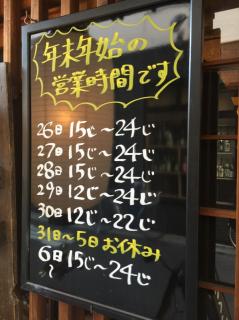 年末年始の
営業時間です
26日 15じ〜24じ
27日 15じ〜24じ
28日 15じ〜24じ
29日 12じ〜24じ
30日 12じ〜22じ
31日〜5日お休み
6日 15じ〜24じ
〜